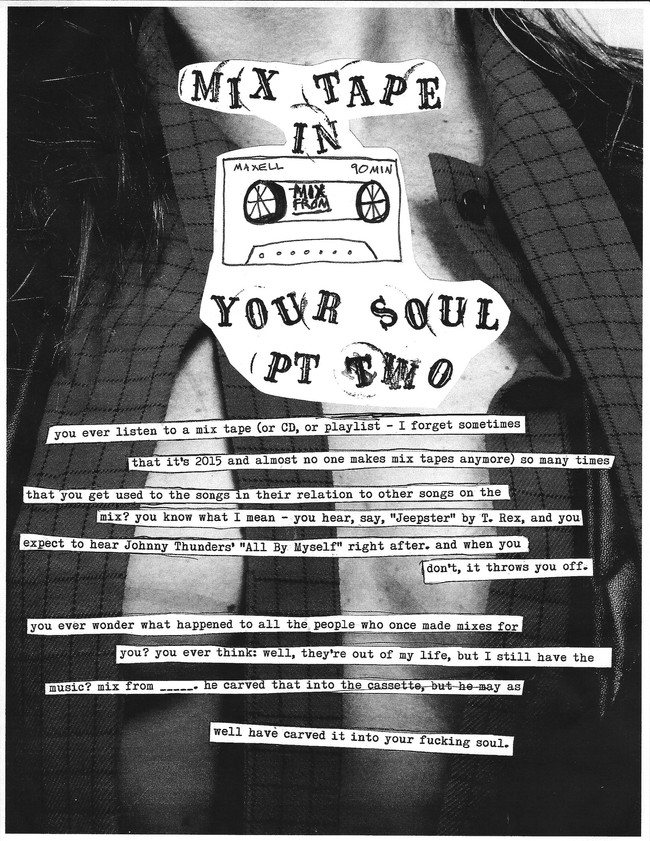 MIX TAPE
IN
MAXELL 90 MIN
MIX
FROM
YOUR SOUL
PT TWO
you ever listen to a mix tape (or CD, or playlist - I forget sometimes
that it's 2015 and almost no one makes mix tapes anymore) so many times
that you get used to the songs in their relation to other songs on the
mix? you know what I mean - you hear, say, "Jeepster" by T. Rex, and you
expect to hear Johnny Thunders' "All By Myself" right after. and when you
don't, it throws you off.
you ever wonder what happened to all the people who once made mixes for
you? you ever think: well, they're out of my life, but I still have the
music? mix from _____. he carved that into the cassette, but he may as
well have carved it into your fucking soul.